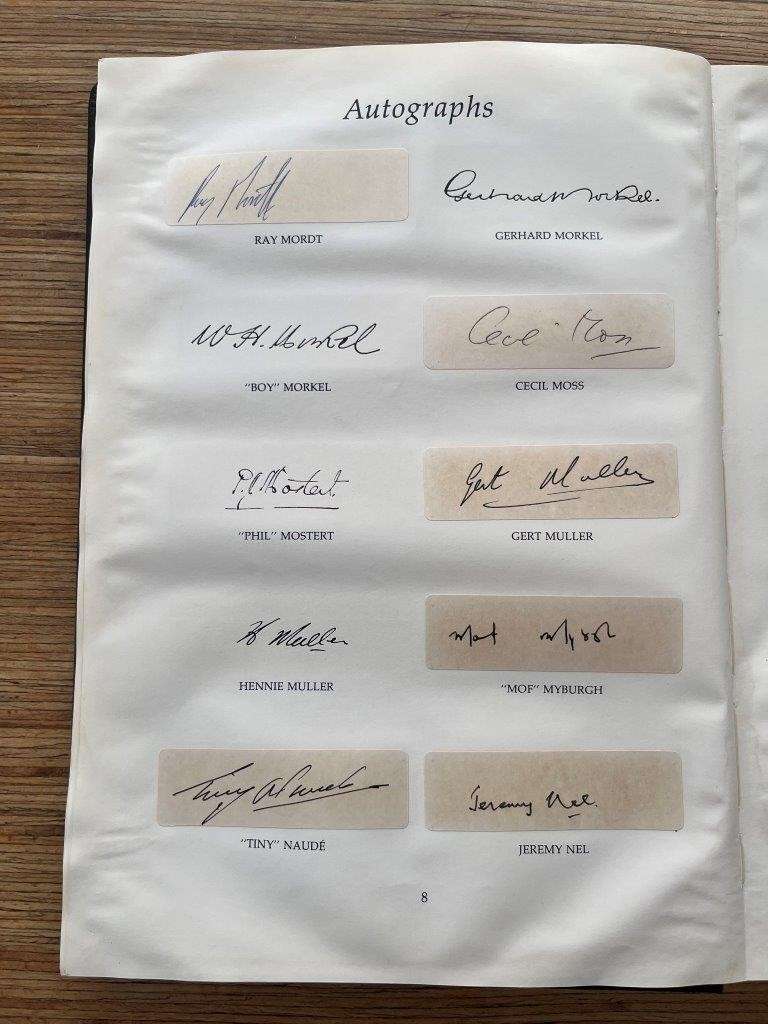 Autographs
Ray Mordt
RAY MORDT
Gerhard Morkel.
GERHARD MORKEL
W H. Morkel
"BOY" MORKEL
Cecil Moss
CECIL MOSS
P.J. Mostert.
"PHIL" MOSTERT
Gert Muller
GERT MULLER
H Muller
HENNIE MULLER
Mof Myburgh
"MOF" MYBURGH
Tiny Naude
"TINY" NAUDÉ
Jeremy Nel.
JEREMY NEL
8